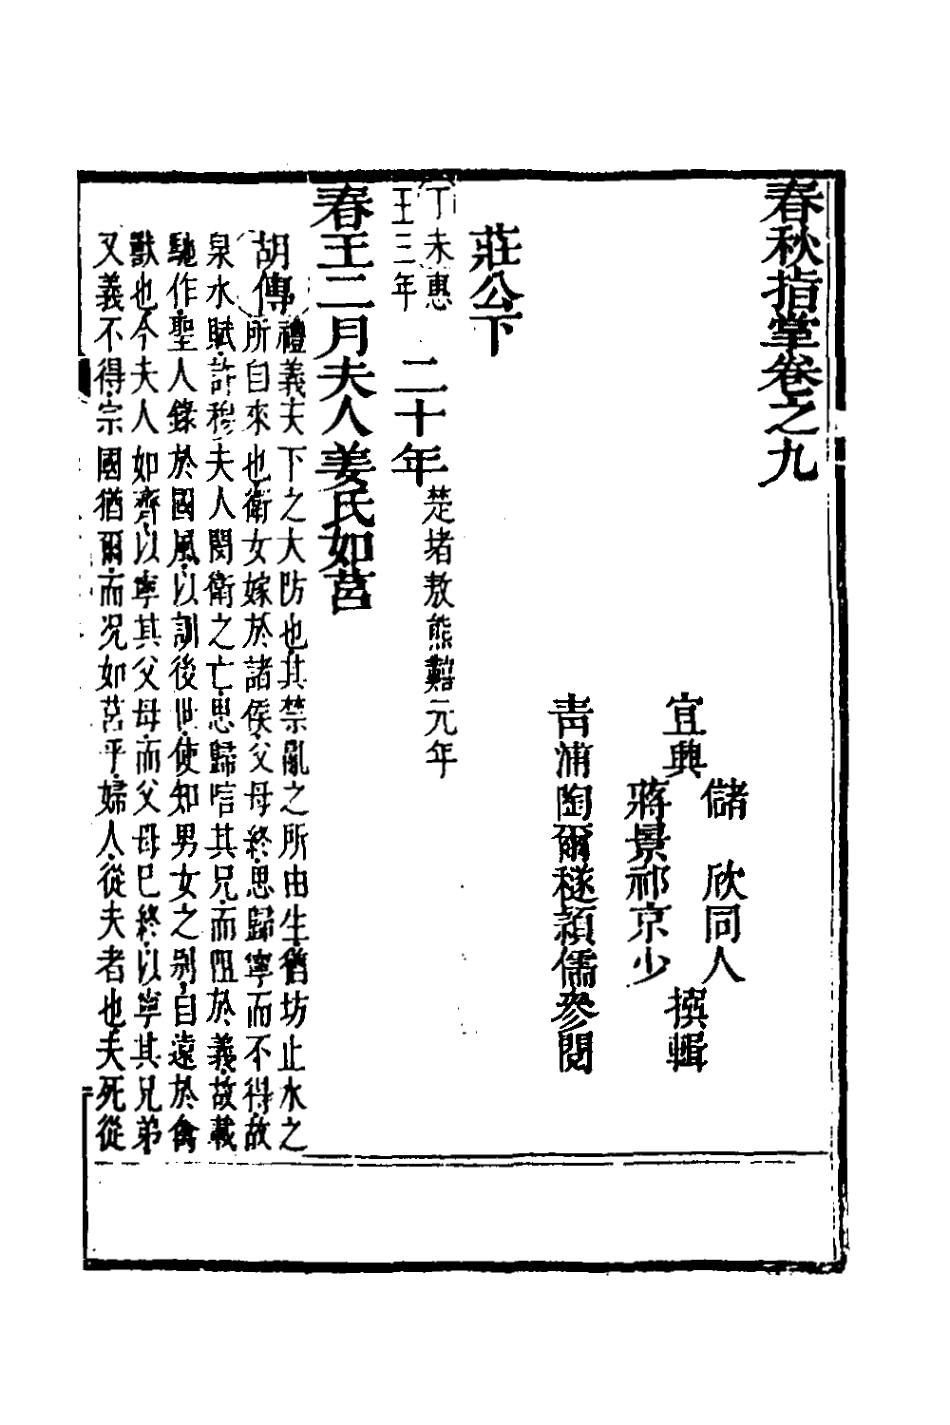 春秋指掌卷之九
儲　欣同人
宜興　撰輯
蔣景祁京少
青浦陶爾穟穎儒參閱
莊公下
丁未惠王三年　二十年楚堵敖熊囏元年
春王二月夫人姜氏如莒
胡傳禮義天下之大防也其禁亂之所由生猶坊止水之
所自來也衛女嫁於諸侯父母終思歸寧而不得故
泉水賦許穆夫人閔衛之亡思歸唁其兄而阻於義故載
馳作聖人錄於國風以訓後世使知男女之別自遠於禽
獸也今夫人如齊以寧其父母而父母已終以寧其兄弟
又義不得宗國猶爾而况如莒乎婦人從夫者也夫死從